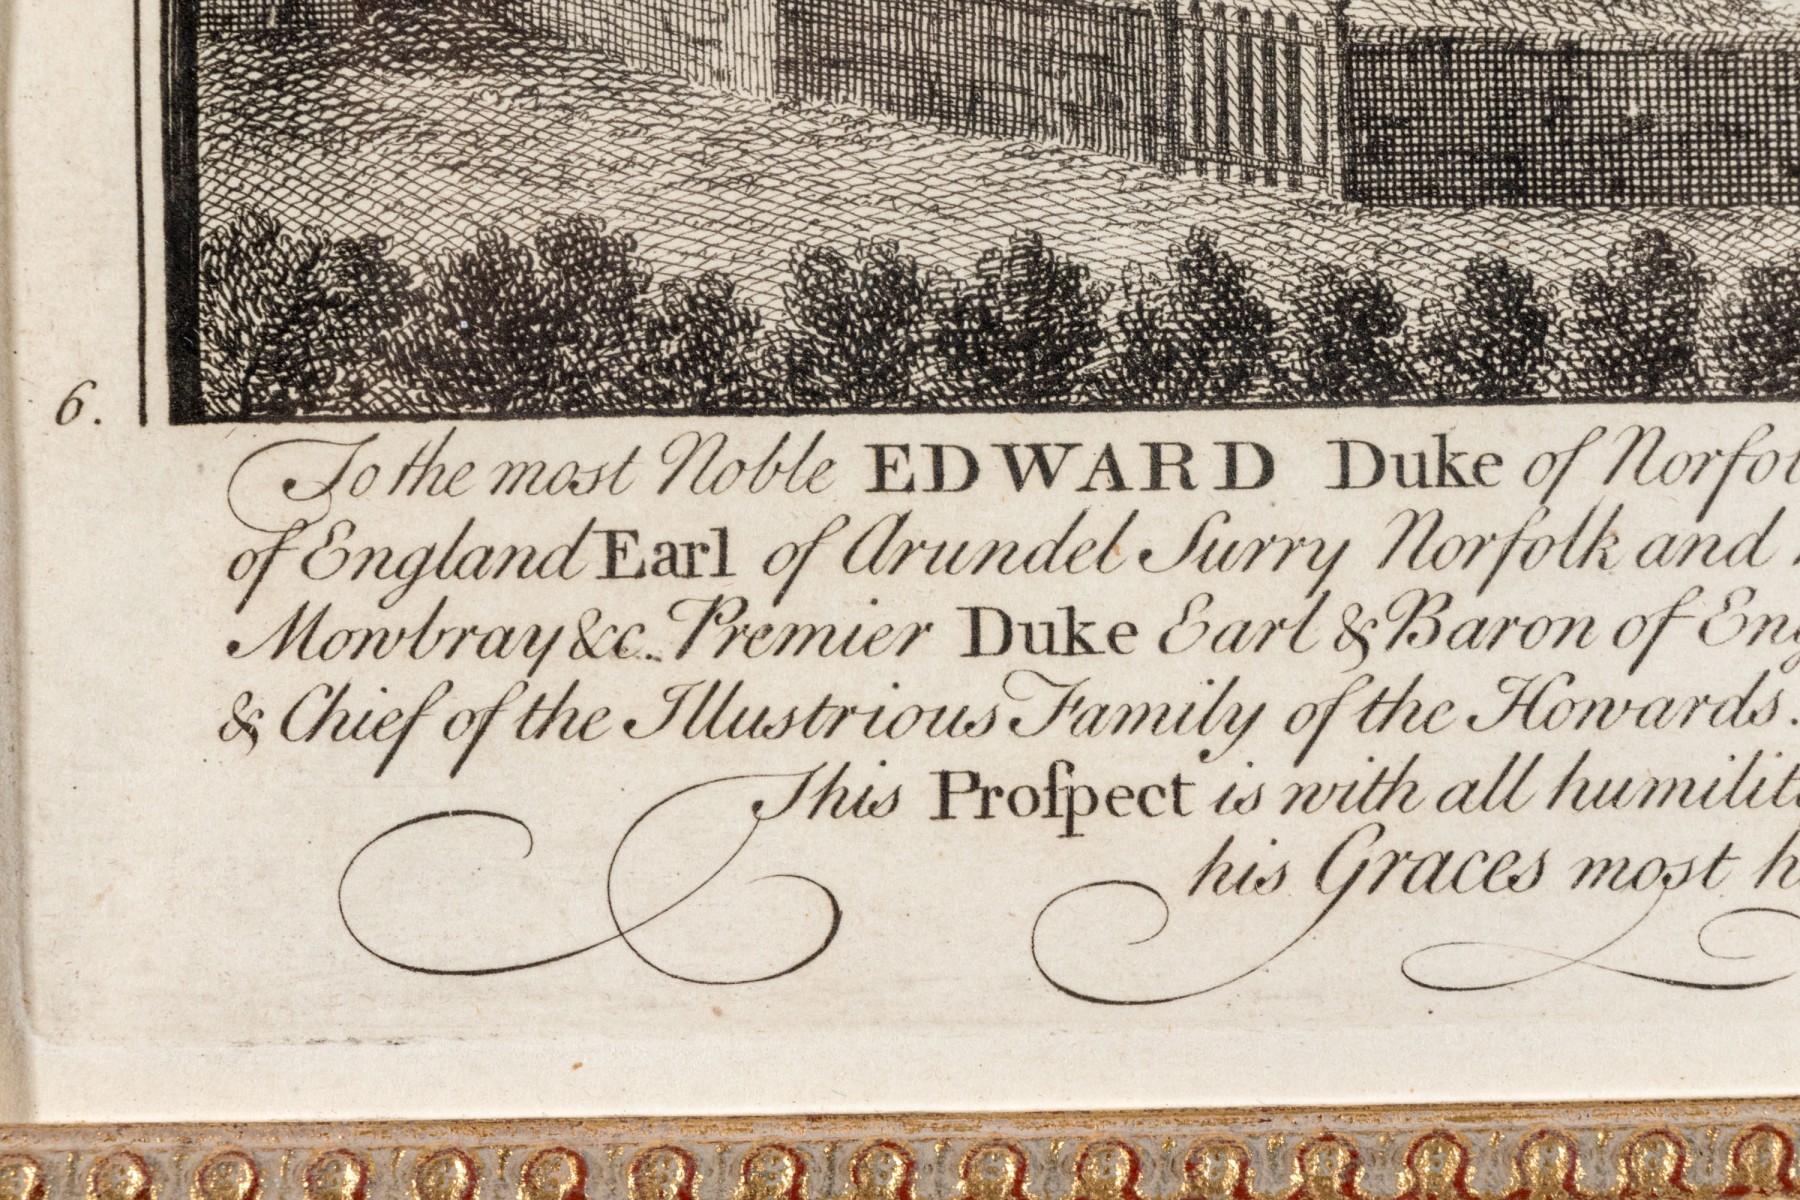 6.
To the most Noble EDWARD Duke of
of England Earl of Arundel Surry Norfolk and
Mowbray &c. Premier Duke Earl & Baron of
& Chief of the Illustrious Family of the Howards.
This Proſpect is with all
his Graces most